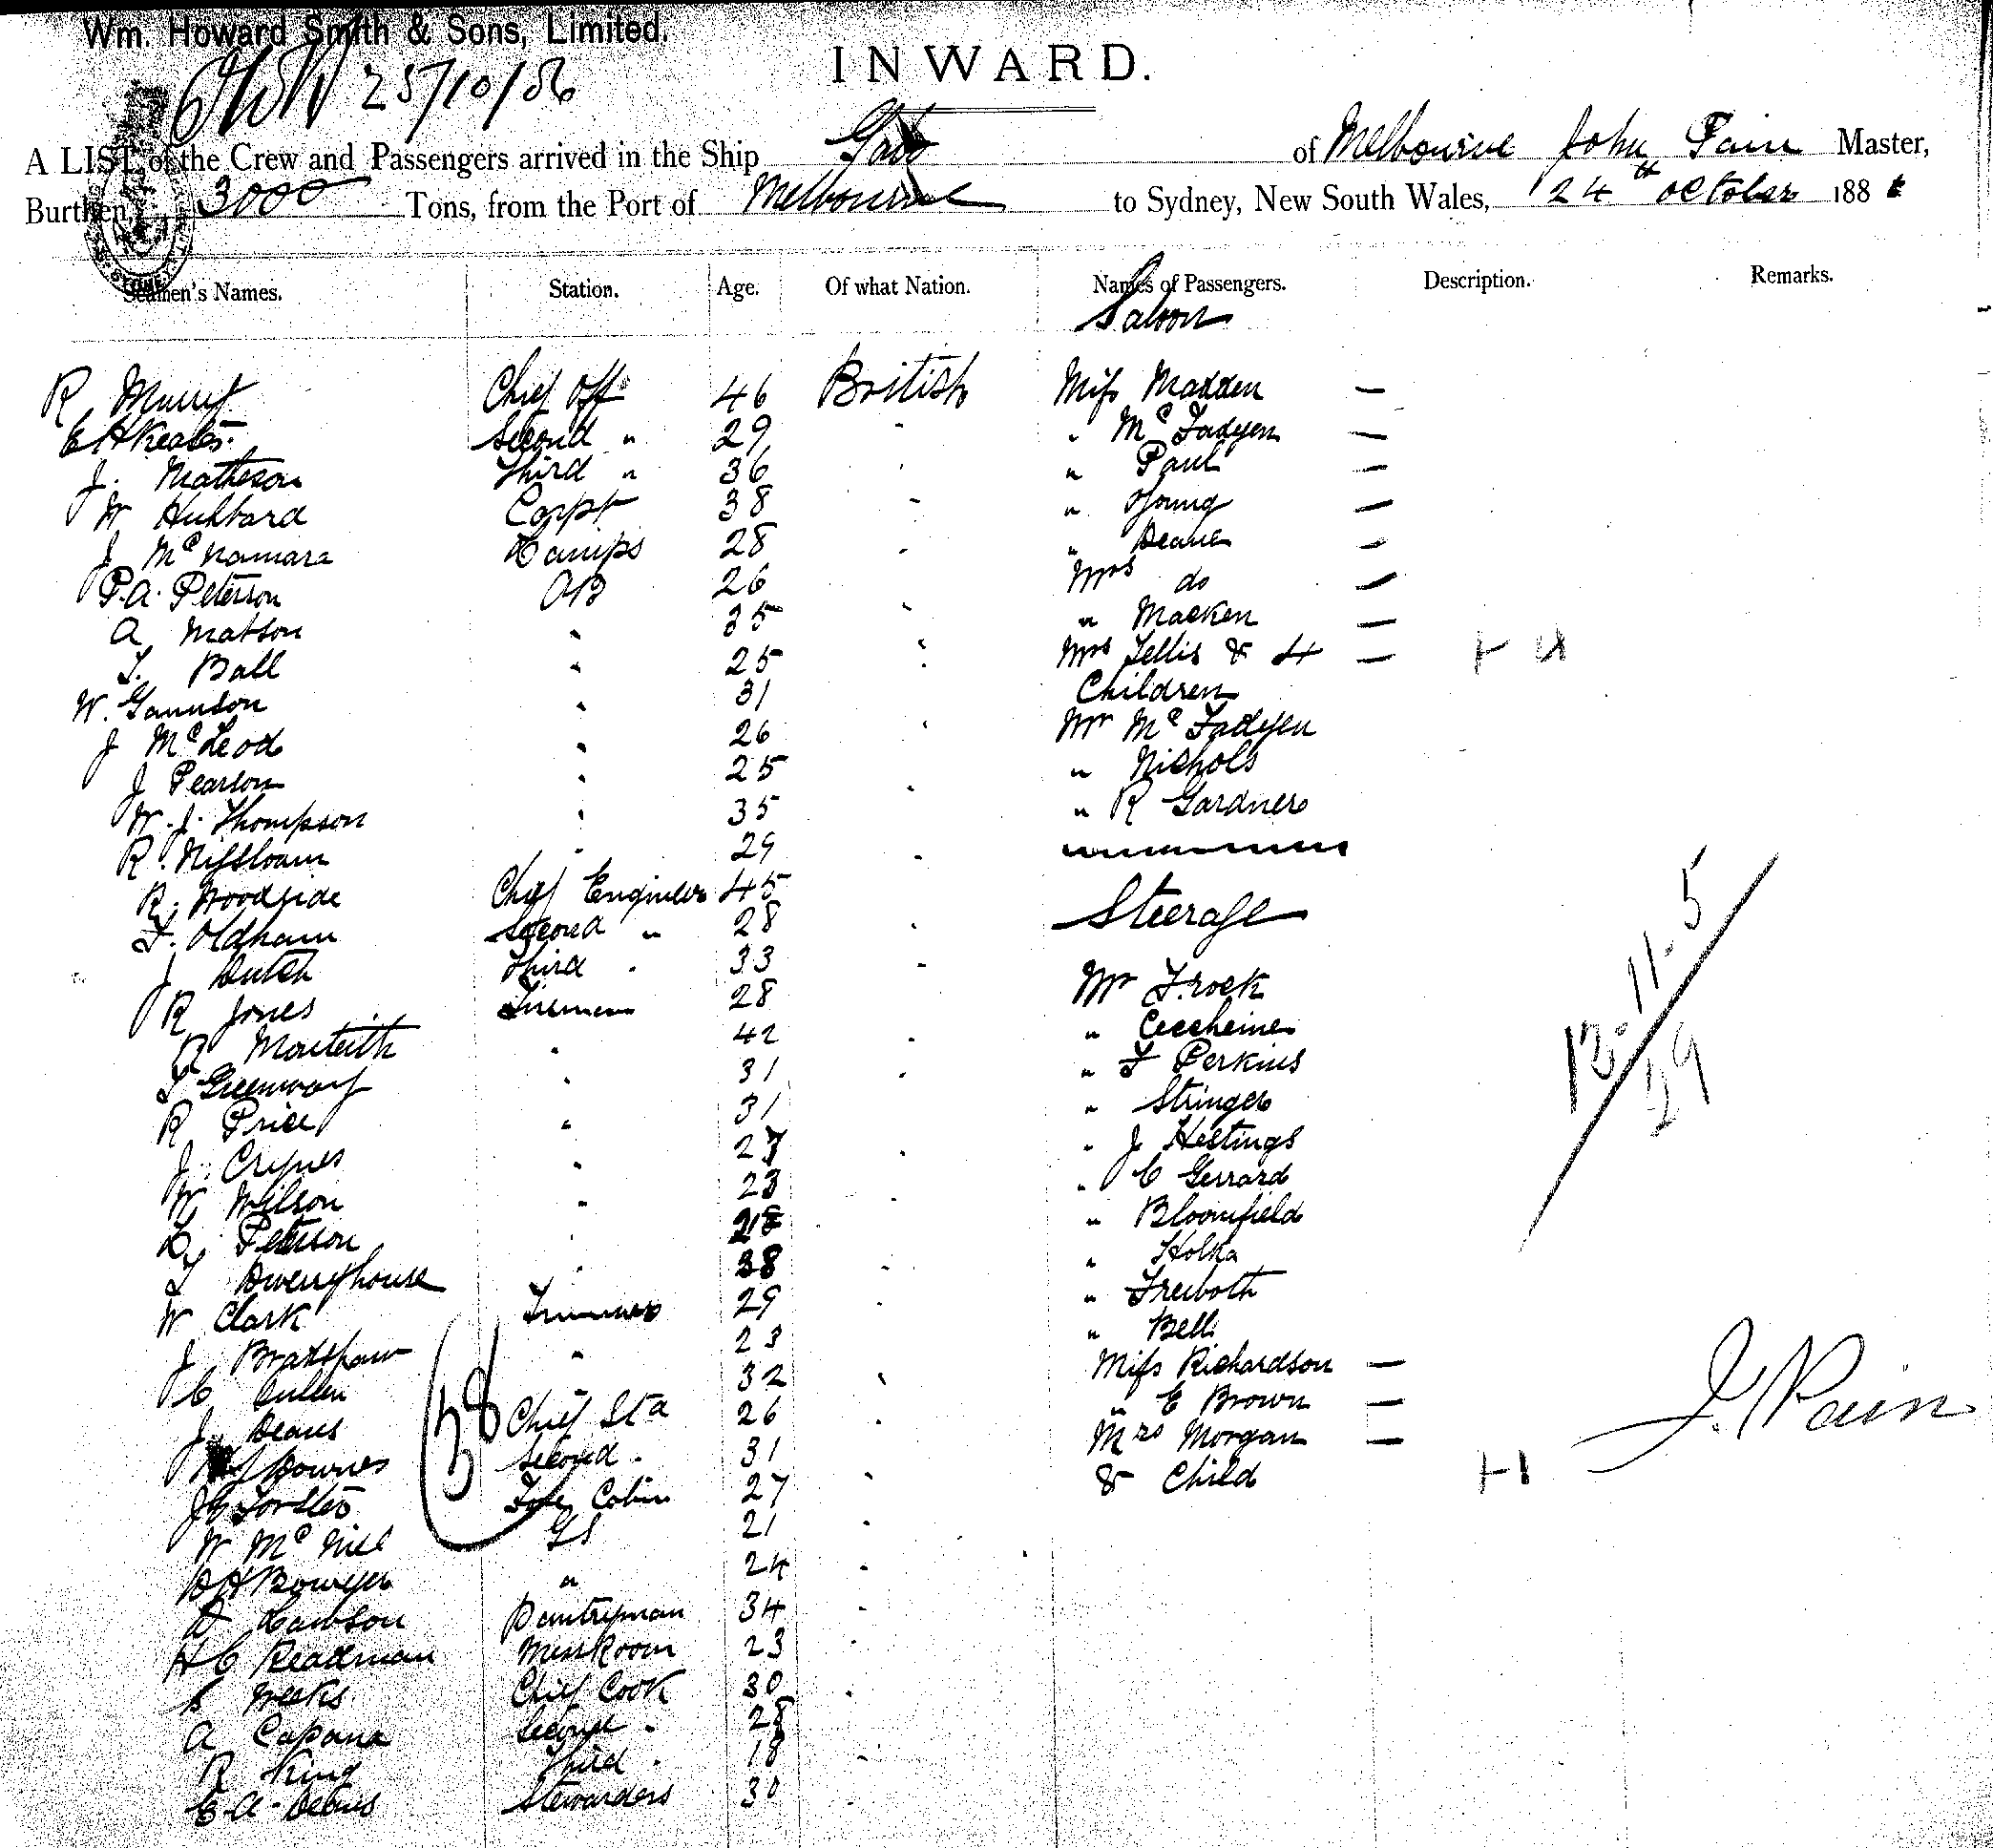 Wm. Howard Smith & Sons, Limited.
25/10/86
INWARD.
A LIST of the Crew and Passengers arrived in the Ship Gabo of Melbourne John Pain Master,
Burthen, 3000 Tons, from the Port of Melbourne to Sydney, New South Wales, 24th October 1886
Seamen's Names. Station. Age. Of what Nation. Names of Passengers. Description. Remarks.
Saloon
R Murray Chief Off 46 British Miss Madden —
E H Keates Second " 29 " McFadyen —
J. Matheson Third " 36 " Paul —
W Hubbard Carpr 38 " Young —
J McNamara Lamps 28 " Deane —
P.A. Peterson AB 26 Mrs do —
A Matson " 35 " Macken —
T. Ball " 25 Mrs Tellis & 4 — + 4
W. Gaunson " 31 Children
J McLeod " 26 Mr McFadyen
J Pearson " 25 " Nichols
W. J. Thompson " 35 " R Gardner
R. 29
R. Woodside Chief Engineer 45 Steerage
F. Oldham Second " 28
J Dutch Third " 33 Mr Frock
R Jones Fireman 28
R Monteith " 42 "
T Greenway " 31 " F Perkins
R Price " 31 " Stringer
J. " 27 " J Hestings
W Wilson " 23 " C Gerrard
L. Peterson " 28 " Bloomfield
T Dwerryhouse " 38 " Holka
W Clark Trimmer 29 " Freiboth
J Bradshaw " 23 " Bell
C Cullen " 32 Miss Richardson —
J. Deans Chief Std 26 " E Brown —
J Downes Second " 31 Mrs Morgan —
J G Forster Fore Cabin 27 & Child + 1
W McNiel GS 21
B H Bowyer " 24
D Lawson Pantryman 34
H C Readman Messroom 23
S Weeks Chief Cook 30
A Capana Second " 28
R King Third " 18
E. A. Stewardess 30
38
13.11.5
29
J. Pain